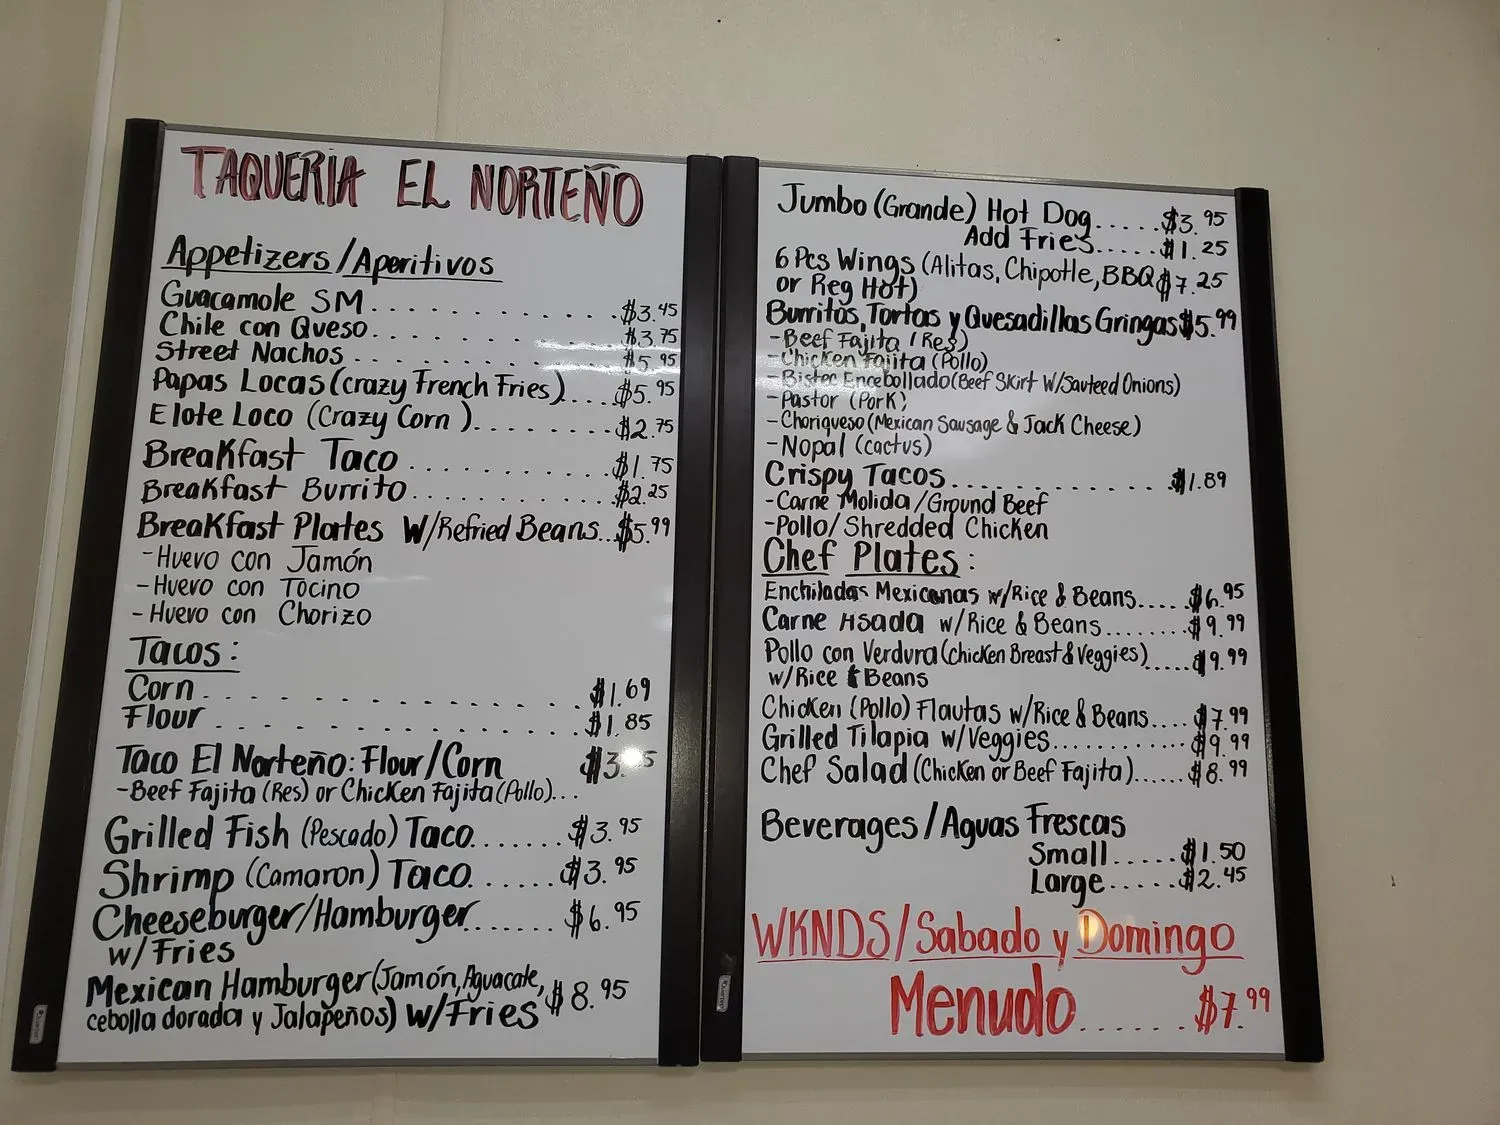 TAQUERIA EL NORTEÑO
Appetizers/Aperitivos
Guacamole SM.................$3.45
Chile con Queso.................$3.75
Street Nachos.................$5.95
Papas Locas (crazy French Fries)....$5.95
Elote Loco (Crazy Corn )........$2.75
Breakfast Taco............$1.75
Breakfast Burrito............$2.25
Breakfast Plates W/Refried Beans...$5.99
-Huevo con Jamón
-Huevo con Tocino
-Huevo con Chorizo
Tacos:
Corn.................$1.69
Flour.................$1.85
Taco El Norteño: Flour/Corn $3.
-Beef Fajita (Res) or Chicken Fajita (Pollo)...
Grilled Fish (Pescado) Taco.......$3.95
Shrimp (Camaron) Taco......$3.95
Cheeseburger/Hamburger.......$6.95
w/Fries
Mexican Hamburger (Jamón, Aguacate, $8.95
cebolla dorada y Jalapeños) w/Fries
Jumbo (Grande) Hot Dog.....$3.95
Add Fries.....$1.25
6 Pcs Wings (Alitas, Chipotle, BBQ $7.25
or Reg Hot)
Burritos, Tortas y Quesadillas Gringas $5.99
-Beef Fajita (Res)
-Chicken Fajita (Pollo)
-Bistec Encebollado (Beef Skirt W/Sauteed Onions)
-Pastor (Pork)
-Choriqueso (Mexican Sausage & Jack Cheese)
-Nopal (cactus)
Crispy Tacos............$1.89
-Carne Molida/Ground Beef
-Pollo/Shredded Chicken
Chef Plates:
Enchiladas Mexicanas w/Rice & Beans.....$6.95
Carne Asada w/Rice & Beans........$9.99
Pollo con Verdura (Chicken Breast & Veggies).....$9.99
w/Rice & Beans
Chicken (Pollo) Flautas w/Rice & Beans....$7.99
Grilled Tilapia w/Veggies............$9.99
Chef Salad (Chicken or Beef Fajita)......$8.99
Beverages/Aguas Frescas
Small.....$1.50
Large.....$2.45
WKNDS/Sabado y Domingo
Menudo.......$7.99
Quartet
Quartet